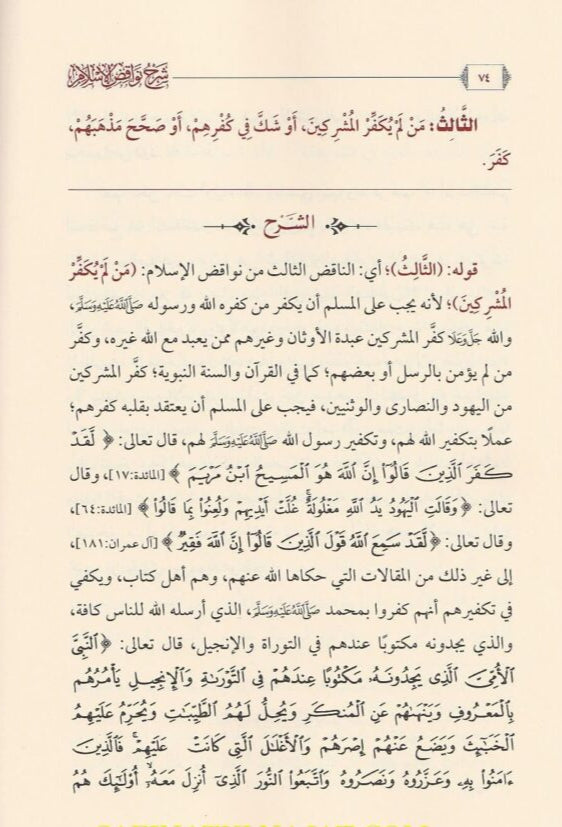 شرح نواقض الإسلام
٧٤
الثَّالِثُ: مَنْ لَمْ يُكَفِّرْ المُشْرِكِينَ، أَوْ شَكَّ فِي كُفْرِهِمْ، أَوْ صَحَّحَ مَذْهَبَهُمْ،
كَفَرَ.
الشَّرح
قوله: (الثَّالِثُ)؛ أي: الناقض الثالث من نواقض الإسلام: (مَنْ لَمْ يُكَفِّرْ
المُشْرِكِينَ)؛ لأنه يجب على المسلم أن يكفر من كفره الله ورسوله صَلَّى اللَّهُ عَلَيْهِ وَسَلَّمَ،
والله جَلَّ وَعَلَا كفَّر المشركين عبدة الأوثان وغيرهم ممن يعبد مع الله غيره، وكفَّر
من لم يؤمن بالرسل أو بعضهم؛ كما في القرآن والسنة النبوية؛ كفَّر المشركين
من اليهود والنصارى والوثنيين، فيجب على المسلم أن يعتقد بقلبه كفرهم؛
عملًا بتكفير الله لهم، وتكفير رسول الله صَلَّى اللَّهُ عَلَيْهِ وَسَلَّمَ لهم، قال تعالى: ﴿ لَّقَدۡ
كَفَرَ ٱلَّذِينَ قَالُوٓاْ إِنَّ ٱللَّهَ هُوَ ٱلۡمَسِيحُ ٱبۡنُ مَرۡيَمَ ﴾ [المائدة:١٧]، وقال
تعالى: ﴿ وَقَالَتِ ٱلۡيَهُودُ يَدُ ٱللَّهِ مَغۡلُولَةٌۚ غُلَّتۡ أَيۡدِيهِمۡ وَلُعِنُواْ بِمَا قَالُواْ ﴾ [المائدة:٦٤]،
وقال تعالى: ﴿ لَّقَدۡ سَمِعَ ٱللَّهُ قَوۡلَ ٱلَّذِينَ قَالُوٓاْ إِنَّ ٱللَّهَ فَقِيرٌ ﴾ [آل عمران:١٨١]،
إلى غير ذلك من المقالات التي حكاها الله عنهم، وهم أهل كتاب، ويكفي
في تكفيرهم أنهم كفروا بمحمد صَلَّى اللَّهُ عَلَيْهِ وَسَلَّمَ، الذي أرسله الله للناس كافة،
والذي يجدونه مكتوبًا عندهم في التوراة والإنجيل، قال تعالى: ﴿ ٱلنَّبِيَّ
ٱلۡأُمِّيَّ ٱلَّذِي يَجِدُونَهُۥ مَكۡتُوبًا عِندَهُمۡ فِي ٱلتَّوۡرَىٰةِ وَٱلۡإِنجِيلِ يَأۡمُرُهُم
بِٱلۡمَعۡرُوفِ وَيَنۡهَىٰهُمۡ عَنِ ٱلۡمُنكَرِ وَيُحِلُّ لَهُمُ ٱلطَّيِّبَٰتِ وَيُحَرِّمُ عَلَيۡهِمُ
ٱلۡخَبَٰٓئِثَ وَيَضَعُ عَنۡهُمۡ إِصۡرَهُمۡ وَٱلۡأَغۡلَٰلَ ٱلَّتِي كَانَتۡ عَلَيۡهِمۡۚ فَٱلَّذِينَ
ءَامَنُواْ بِهِۦ وَعَزَّرُوهُ وَنَصَرُوهُ وَٱتَّبَعُواْ ٱلنُّورَ ٱلَّذِيٓ أُنزِلَ مَعَهُۥٓ أُوْلَٰٓئِكَ هُمُ